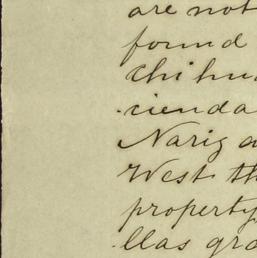 are not
found
Chihu
cienda
Nariz a
West th
property,
llas gra